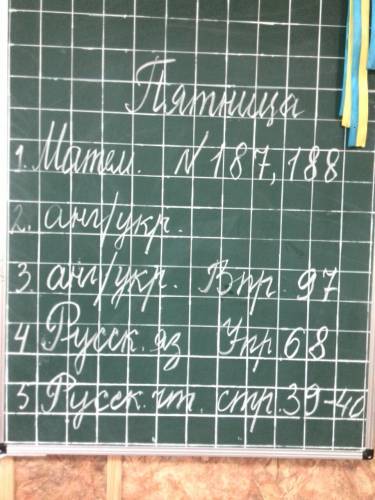 Пятница
1. Матем. № 187, 188
2. анг/укр.
3. анг/укр. Впр. 97
4 Русск. яз Упр 68
5. Русск. чт. стр. 39-40